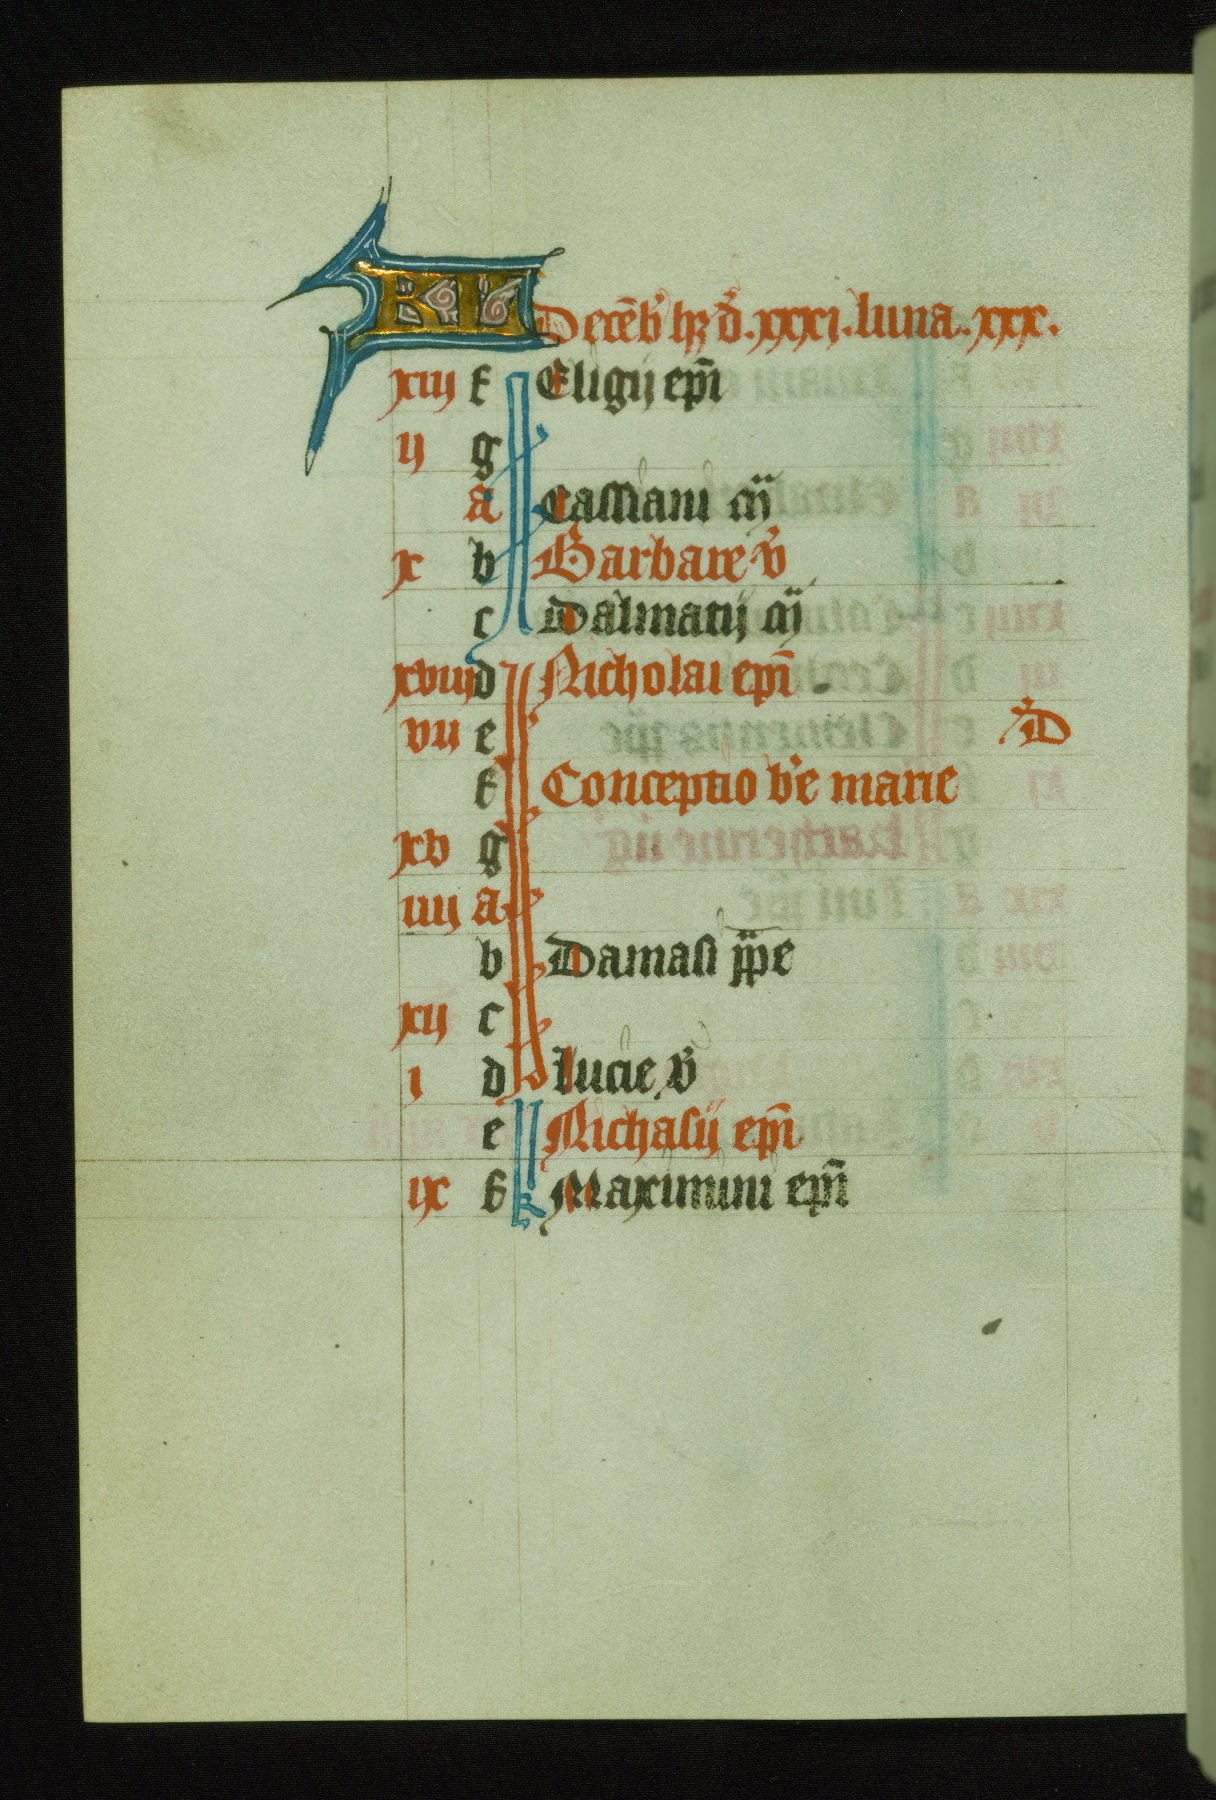 KL Decēb' hꝫ d'. xxxi. luna. xxx.
xiij f Eligij ep̄i
ij g
a Cassiani m̄
x b Barbare v'
c Dalmatij m̄
xviij d Nicholai ep̄i
vij e D'
f Conceptio b'e marie
xv g
iiij a
b Damasi p̄pe
xij c
i d lucie v'
e Nichasij ep̄i
ix f Maximini ep̄i